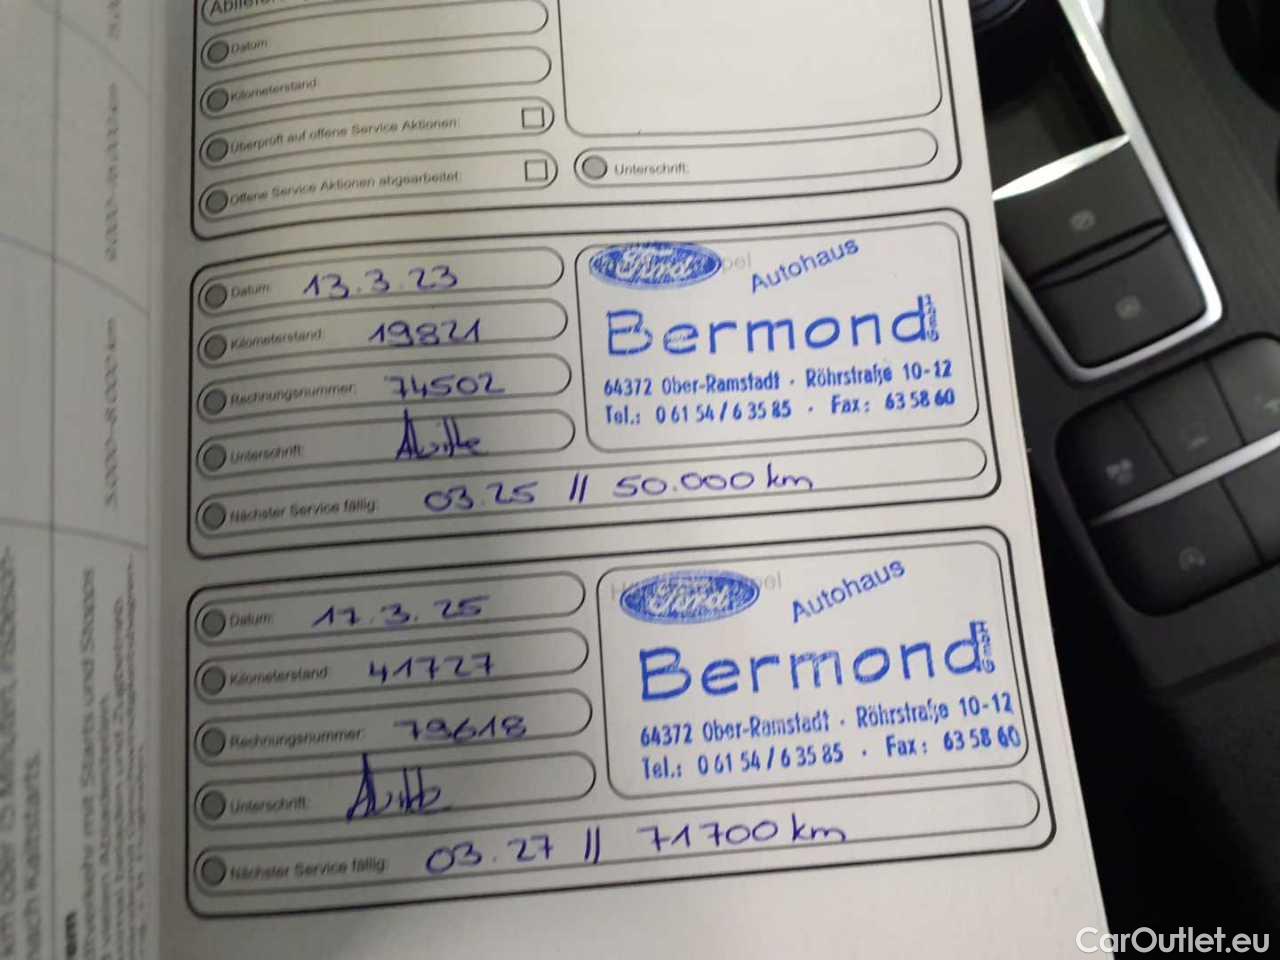 Datum:
Kilometerstand:
Überprüft auf offene Service Aktionen:
Offene Service Aktionen abgearbeitet:
Unterschrift:
Datum: 13.3.23
Kilometerstand: 19821
Rechnungsnummer: 74502
Unterschrift:
Nächster Service fällig: 03.25 // 50.000 km
Ford
Autohaus
Bermond
64372 Ober-Ramstadt · Röhrstraße 10-12
Tel.: 0 61 54 / 6 35 85 · Fax: 63 58 60
Datum: 17.3.25
Kilometerstand: 41727
Rechnungsnummer: 79618
Unterschrift:
Nächster Service fällig: 03.27 // 71700 km
Ford
Autohaus
Bermond
64372 Ober-Ramstadt · Röhrstraße 10-12
Tel.: 0 61 54 / 6 35 85 · Fax: 63 58 60
nach Kaltstarts.
CarOutlet.eu